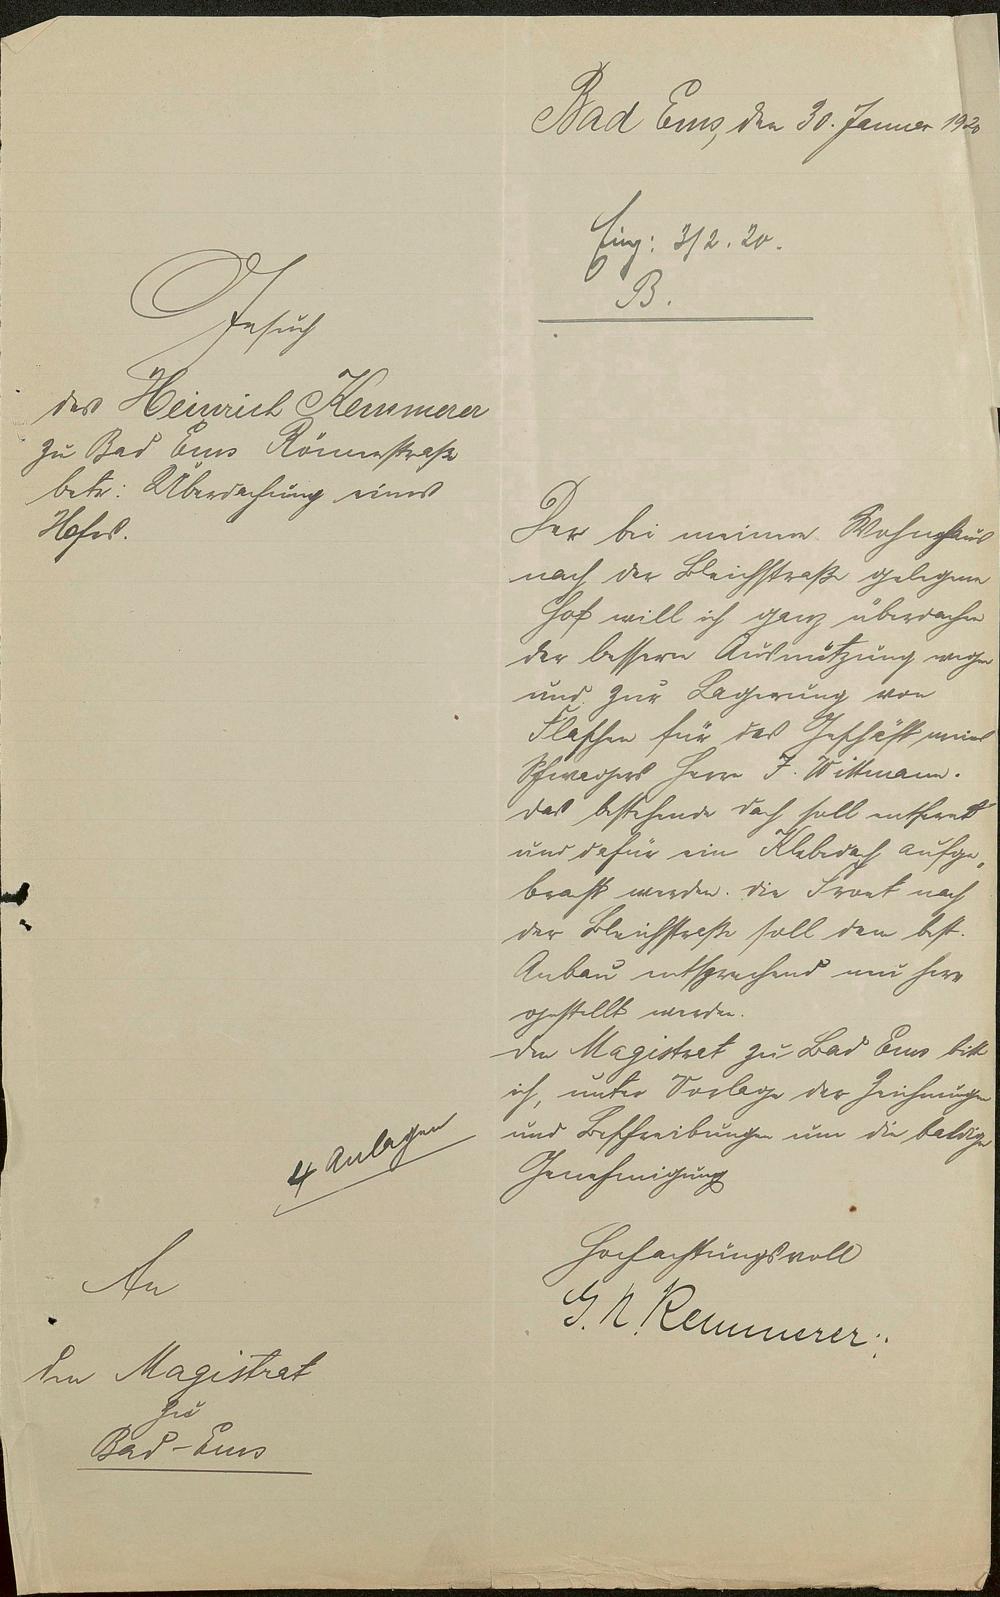 Bad Ems, den 30. Januar 1920
Eing: 3/2. 20.
B.
Gesuch
des Heinrich Kemmerer
zu Bad Ems Römerstraße
betr: Überdachung eines
Hofes.
Der bei meinem Wohnhaus
nach der Bleichstraße gelegene
Hof will ich ganz überdachen
der bessern Ausnützung wegen
und zur Lagerung von
Flaschen für das Geschäft meines
Schwagers Herrn J. Wittmann.
das bestehende Dach soll entfernt
und dafür ein Klebedach aufge„
bracht werden. die Front nach
der Bleichstraße soll dem best.
Anbau entsprechend neu her„
gestellt werden.
den Magistrat zu Bad Ems bitte
ich, unter Vorlage der Zeichnungen
und Beschreibungen um die baldige
Genehmigung
Hochachtungsvoll
Kemmerer
4 Anlagen
An
den Magistrat
zu
Bad-Ems